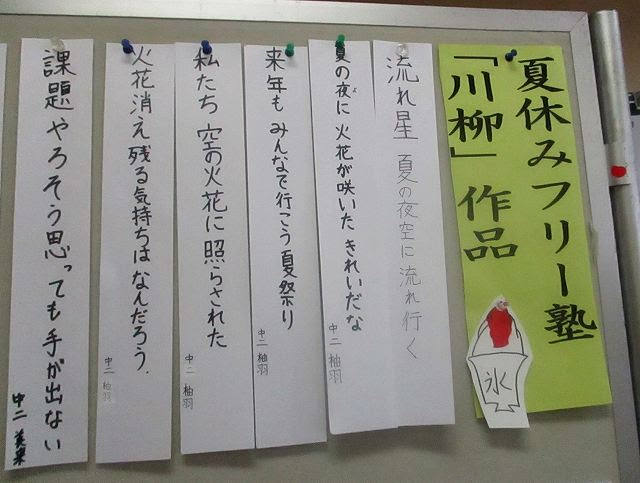 夏休みフリー塾
「川柳」作品
氷
流れ星 夏の夜空に流れ行く
夏の夜に 火花が咲いた きれいだな
よ
中二 柚羽
来年も みんなで行こう 夏祭り
中二 柚羽
私たち 空の火花に 照らされた
中二 柚羽
火花消え 残る気持ちは なんだろう.
中二 柚羽
課題 やろそう思っても 手が出ない
中二